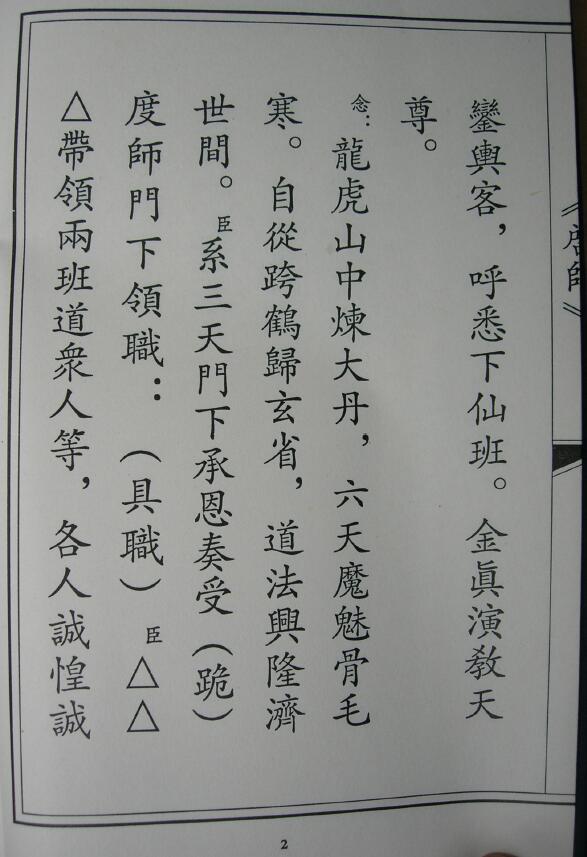 鑾輿客，呼悉下仙班。金眞演教天
尊。
念：龍虎山中煉大丹，六天魔魅骨毛
寒。自從跨鶴歸玄省，道法興隆濟
世間。臣系三天門下承恩奏受（跪）
度師門下領職：（具職）臣△△
△帶領兩班道衆人等，各人誠惶誠
2